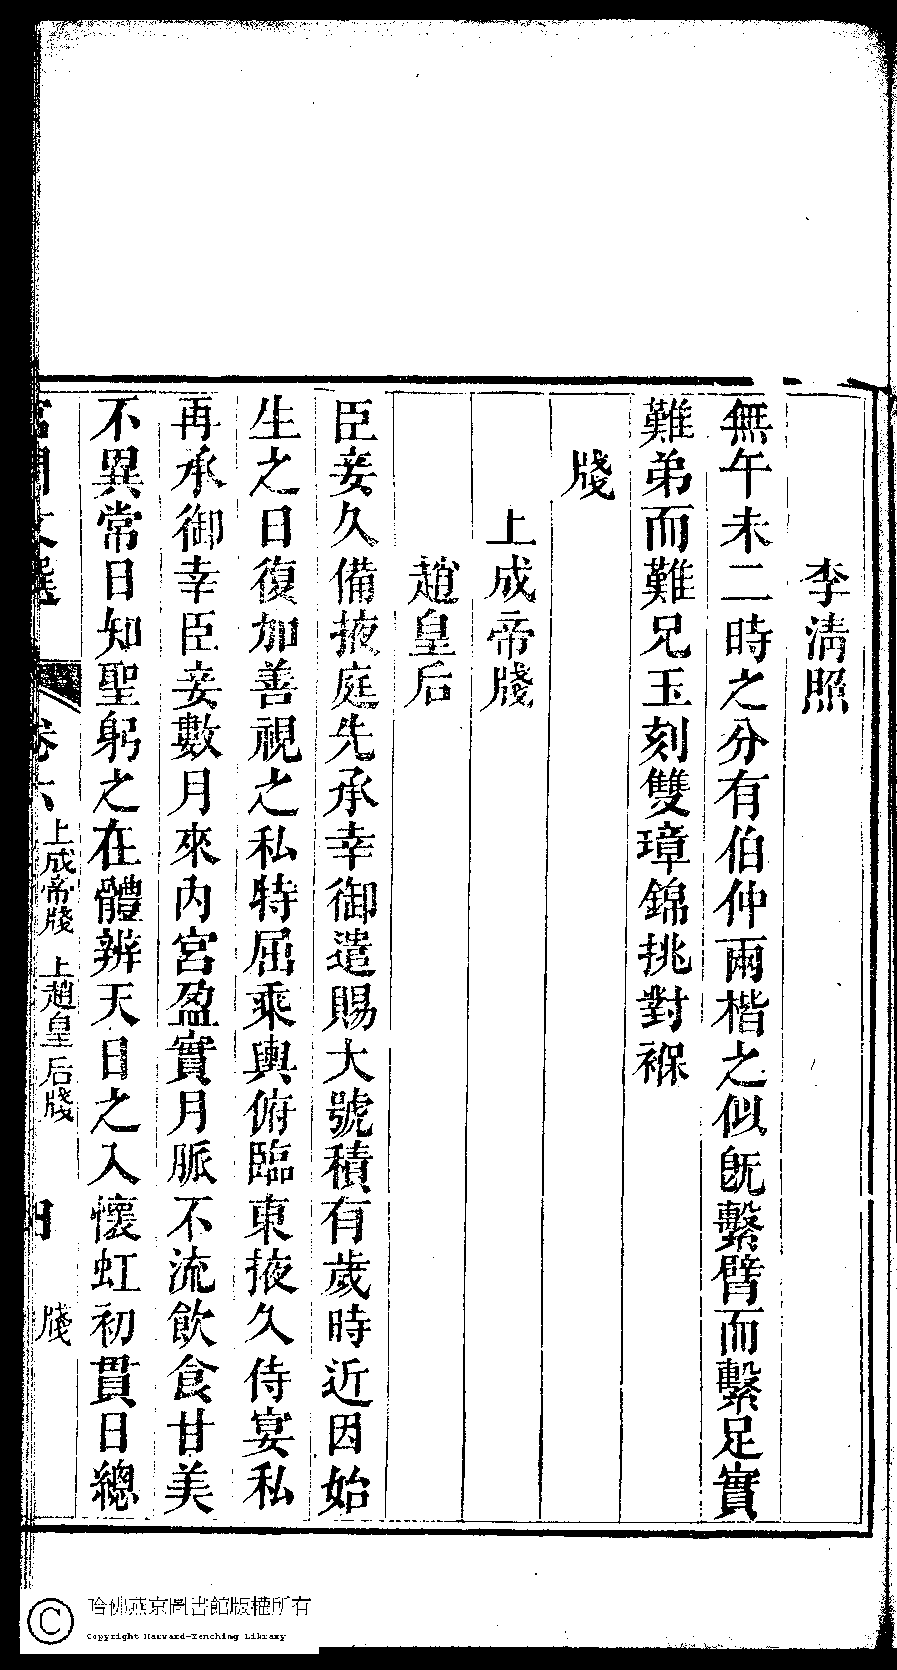 李清照
無午未二時之分有伯仲兩楷之似旣繫臂而繫足實
難弟而難兄玉刻雙璋錦挑對褓
牋
上成帝牋
趙皇后
臣妾久備掖庭先承幸御遣賜大號積有歲時近因始
生之日復加善視之私特屈乘輿俯臨東掖久侍宴私
再承御幸臣妾數月來內宮盈實月脈不流飲食甘美
不異常日知聖躬之在體辨天日之入懷虹初貫日總
宮閨文選 卷六 上成帝牋 上趙皇后牋 四 牋
哈佛燕京圖書館版權所有
Copyright Harvard-Yenching Library